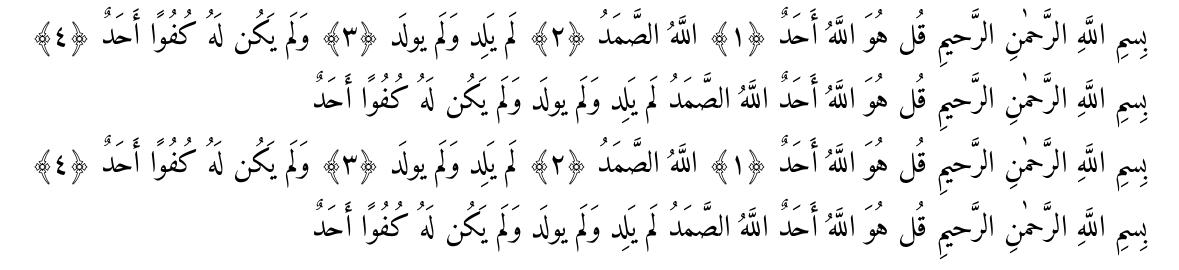 بِسمِ اللَّهِ الرَّحمٰنِ الرَّحيمِ قُل هُوَ اللَّهُ أَحَدٌ ﴿١﴾ اللَّهُ الصَّمَدُ ﴿٢﴾ لَم يَلِد وَلَم يولَد ﴿٣﴾ وَلَم يَكُن لَهُ كُفُوًا أَحَدٌ ﴿٤﴾
بِسمِ اللَّهِ الرَّحمٰنِ الرَّحيمِ قُل هُوَ اللَّهُ أَحَدٌ اللَّهُ الصَّمَدُ لَم يَلِد وَلَم يولَد وَلَم يَكُن لَهُ كُفُوًا أَحَدٌ
بِسمِ اللَّهِ الرَّحمٰنِ الرَّحيمِ قُل هُوَ اللَّهُ أَحَدٌ ﴿١﴾ اللَّهُ الصَّمَدُ ﴿٢﴾ لَم يَلِد وَلَم يولَد ﴿٣﴾ وَلَم يَكُن لَهُ كُفُوًا أَحَدٌ ﴿٤﴾
بِسمِ اللَّهِ الرَّحمٰنِ الرَّحيمِ قُل هُوَ اللَّهُ أَحَدٌ اللَّهُ الصَّمَدُ لَم يَلِد وَلَم يولَد وَلَم يَكُن لَهُ كُفُوًا أَحَدٌ